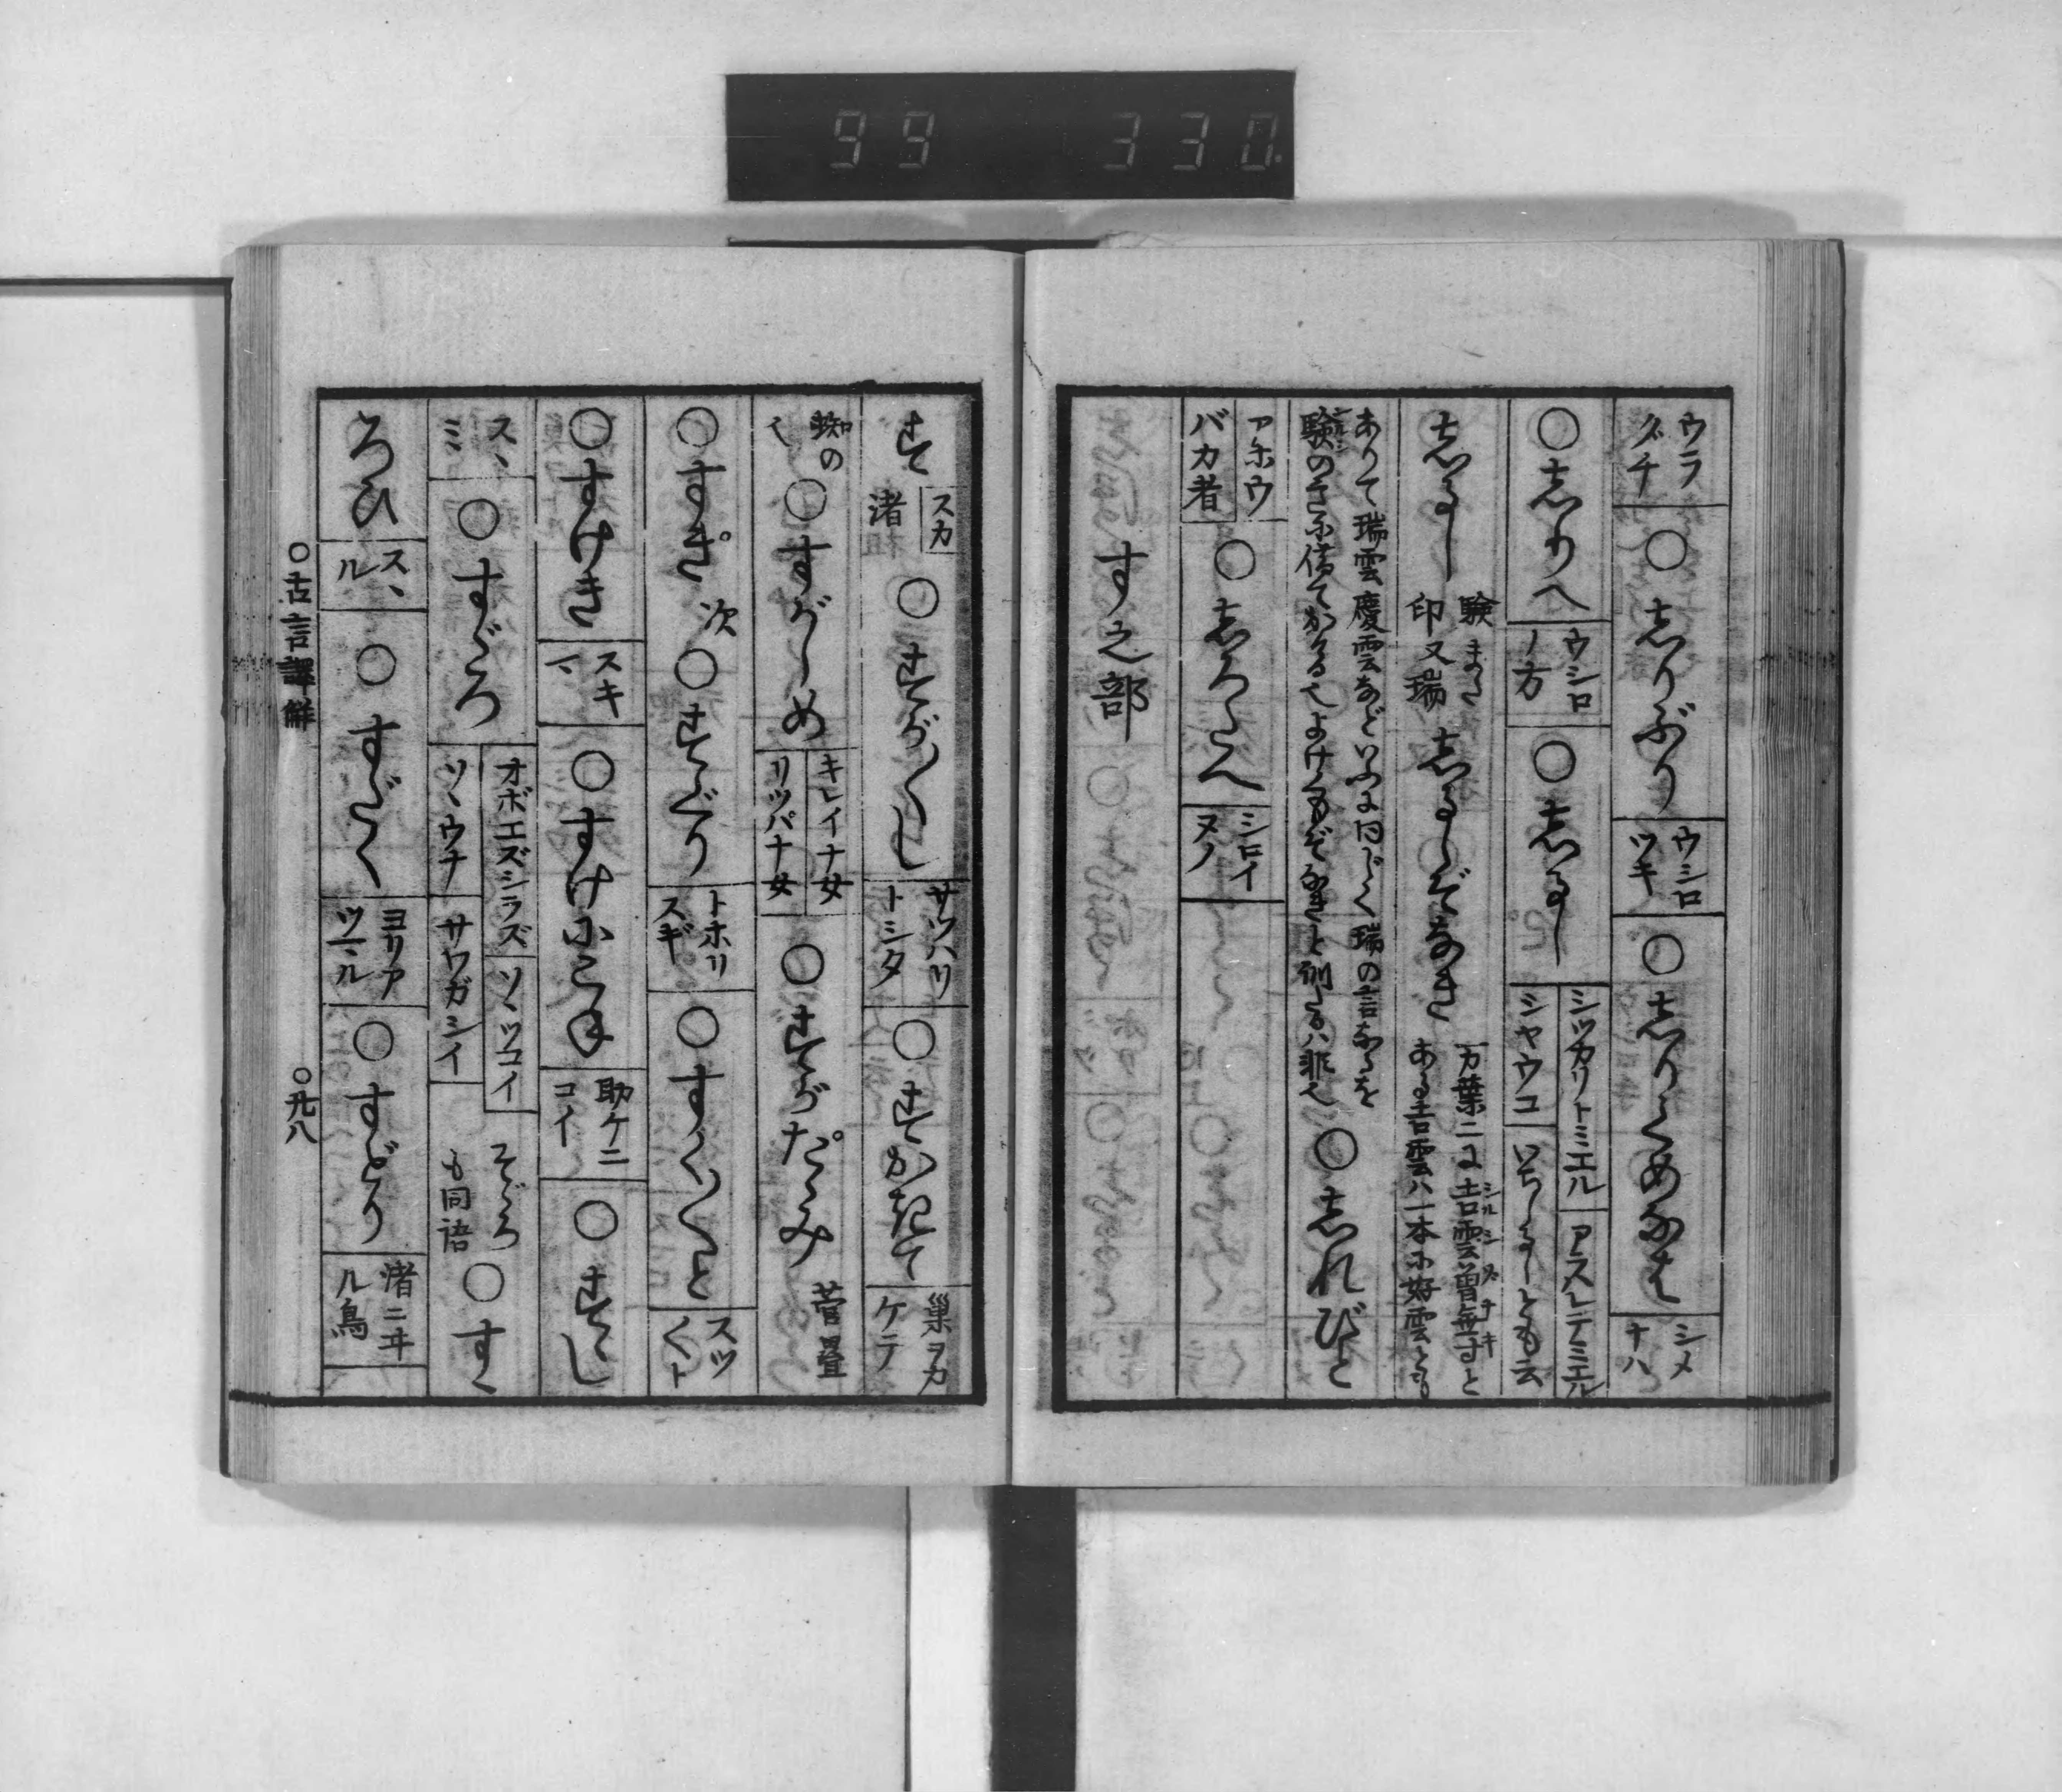 99 330.
ウラグチ ○志りぶり ウシロツキ ○志りくめなは シメナハ
○志りへ ウシロノ方 ○志るし シツカリトミエル アスレテミエル シヤウコ いちしるしとも云
志るし 験 印又瑞 志るしぞなき 万葉二に吉雲曽無寸と ある吉雲ハ一本に好雲とも
ありて瑞雲慶雲などいふに同じく瑞の言なるを
験のさに借てかける也よけくもぞなきと訓るハ非也 ○志れびと
アホウ バカ者 ○志ろたへ シロイヌノ
す之部
す スカ 渚 ○すがすがし サツハリトシタ ○すかきて 巣ヲカケテ
蜘の也 ○すがしめ キレイナ女 リツパナ女 ○すがだゝみ 菅畳
○すぎ 次 ○すぐり トホリスギ ○すくすくと スツくト
○すけき スキマ ○すけにこね 助ケニコイ ○すゝし
スヽミ ○すゞろ オボエズシラズ ソヽツコイ ソヽウチ サワガシイ そゞろも同語 ○すゝ
ろひ スヽル ○すだく ヨリアツマル ○すどり 渚ニヰル鳥
○古言譯解 ○九八